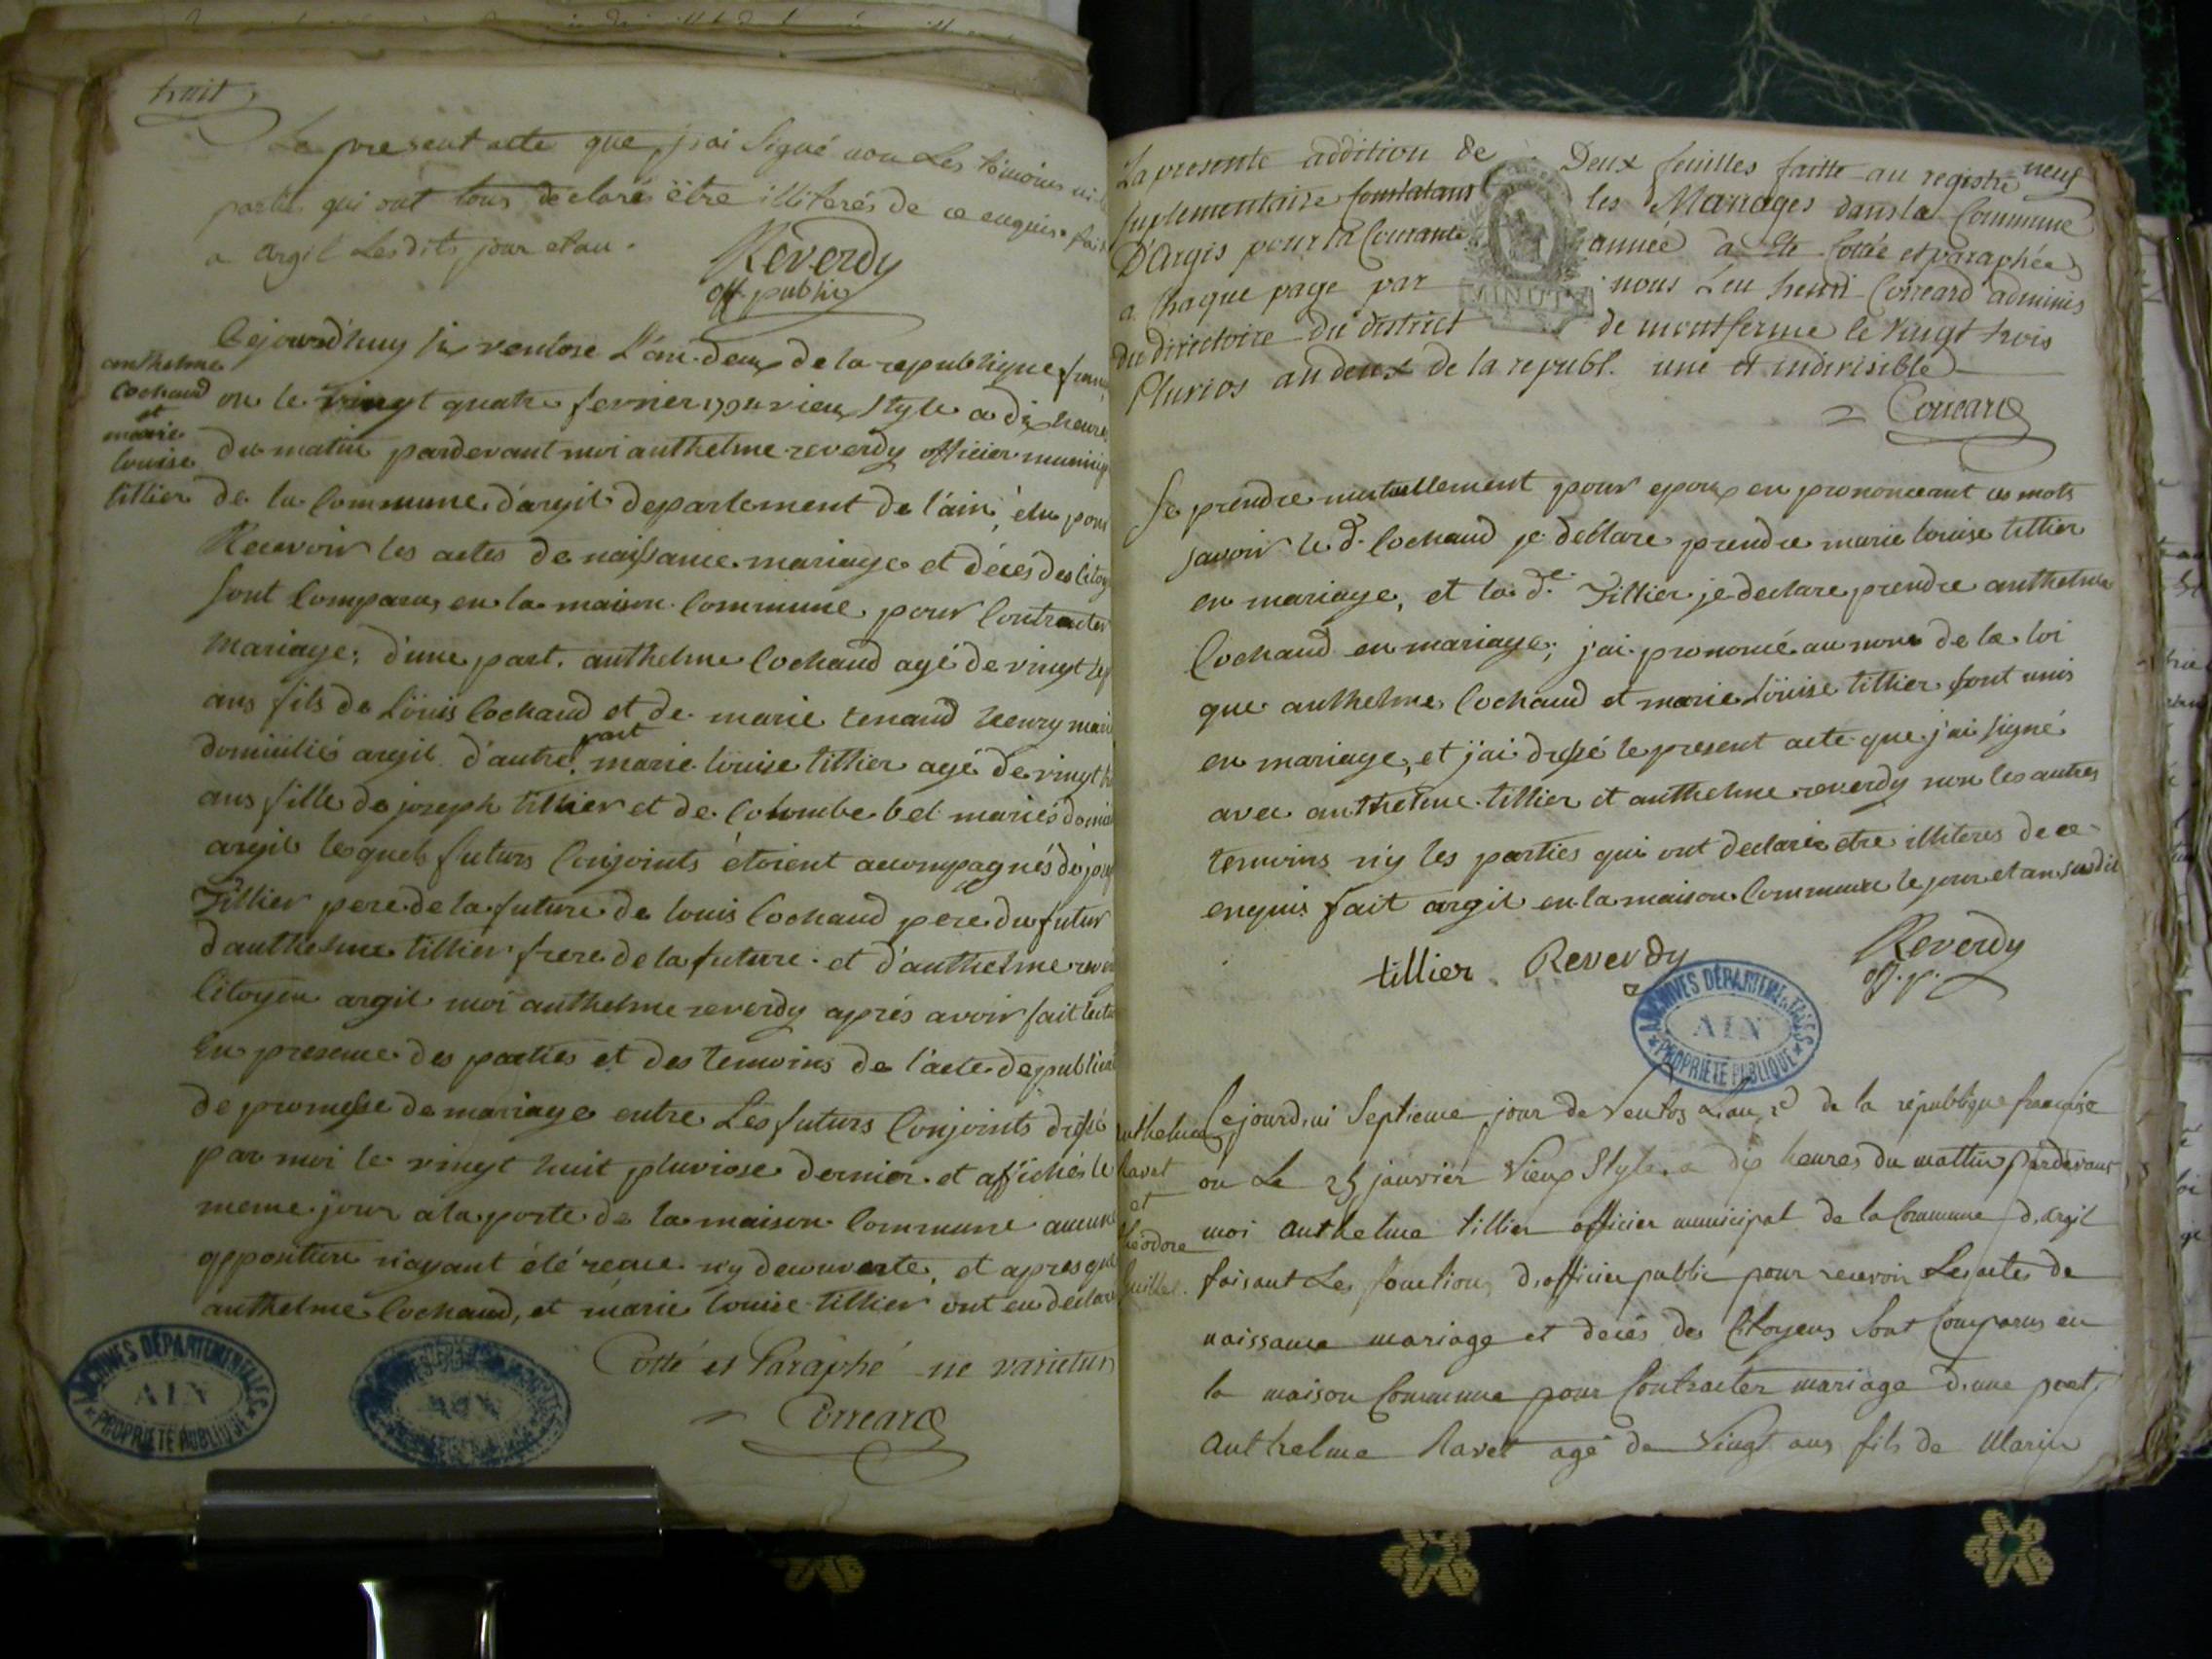 huit
Le present acte que j'ai signé non Les témoins ni les
parties qui ont tous declarés être illiterés de ce enquis. fait
a argil Lesdits jour et an.
Reverdy
off. public
anthelme
Cochaud
et
marie
louise
tillier
Cejourd'huy six ventose L'an deux de la republique fran
ou le vingt quatre fevrier 1794 vieux style a dix heures
du matin pardevant moi anthelme reverdy officier municip
de la Commune d'argil departement de l'ain, élu pour
Recevoir les actes de naissance mariage et décés des Citoy
sont Comparus en la maison Commune pour Contracter
mariage; d'une part. anthelme Cochaud agé de vingt sep
ans fils de Loüis Cochaud et de marie tenand henry mari
domiciliés argil. d'autre part marie loüise tillier agé de vingt
ans fille de joseph tillier et de Colombe bel mariés domici
argil lesquels futurs Conjoints étoient accompagnés de jose
Tillier pere de la future de louis Cochaud pere du futur
d'anthelme tillier frere de la future et d'anthelme rever
Citoyen argil moi anthelme reverdy aprés avoir fait lectu
En presence des parties et des temoins de l'acte de publicat
de promesse de mariage entre Les futurs Conjoints dressé
par moi le vingt huit pluviose dernier et affichés le
meme jour a la porte de la maison Commune aucune
opposition n'ayant été reçue n'y decouverte, et apres que
anthelme Cochaud, et marie louise tillier ont eu declaré
Cotté et Paraphé ne varietur
Correard
ARCHIVES DÉPARTEMENTALES
AIN
PROPRIÉTÉ PUBLIQUE
neuf
La presente addition de Deux feuilles faitte au registre
suplementaire Constatant les Mariages dans la Commune
D'Argis pour la Courante année a été Cottée et paraphée
a Chaque page par nous Leu henri Correard adminis
du directoire du district de montferme le vingt trois
Pluvios an deux de la republ. une et indivisible
MINUTE
Correard
se prendre mutuellement pour epoux en prononcerant ces mots
savoir le d. Cochaud je declare prendre marie louise tillier
en mariage, et la de. Tillier je declare prendre anthelme
Cochaud en mariage; j'ai prononcé au nom de la loi
que anthelme Cochaud et marie Loüise tillier sont unis
en mariage, et j'ai dressé le present acte que j'ai signé
avec anthelme tillier et anthelme reverdy non les autres
temoins n'y les parties qui ont declarée etre illiteres de ce
enquis fait argil en la maison Commune le jour et an susdit
tillier Reverdy Reverdy
off. p.
ARCHIVES DÉPARTEMENTALES
AIN
PROPRIÉTÉ PUBLIQUE
anthelme
Ravet
et
théodore
Cejourd,ui Septieme jour de Ventos Lan 2d de la république française
ou Le 25 janvrier Vieux Style a dix heures du mattin pardevant
moi anthelme tillier officier municipal de la Commune d,argil
faisant Les fonctions d,officier public pour recevoir Les actes de
naissance mariage et decés des Citoyens Sont Comparus en
la maison Commune pour Contracter mariage d,une part,
anthelme Ravet agé de Vingt ans fils de Marin